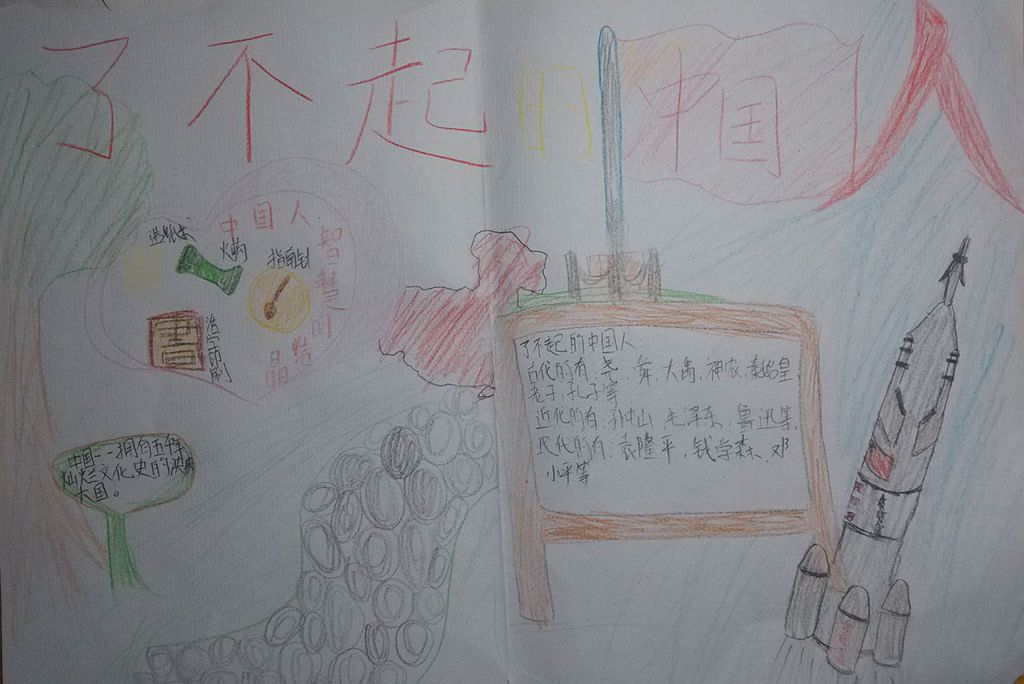 了不起的中国人
中国人
智慧的
结晶
造纸术
火药
指南针
活字印刷
了不起的中国人
古代的有:尧、舜、大禹、神农、秦始皇、
老子、孔子等
近代的有:孙中山、毛泽东、鲁迅等
现代的有:袁隆平,钱学森、邓
小平等
中国——拥有五千年
灿烂文化史的泱泱
大国。